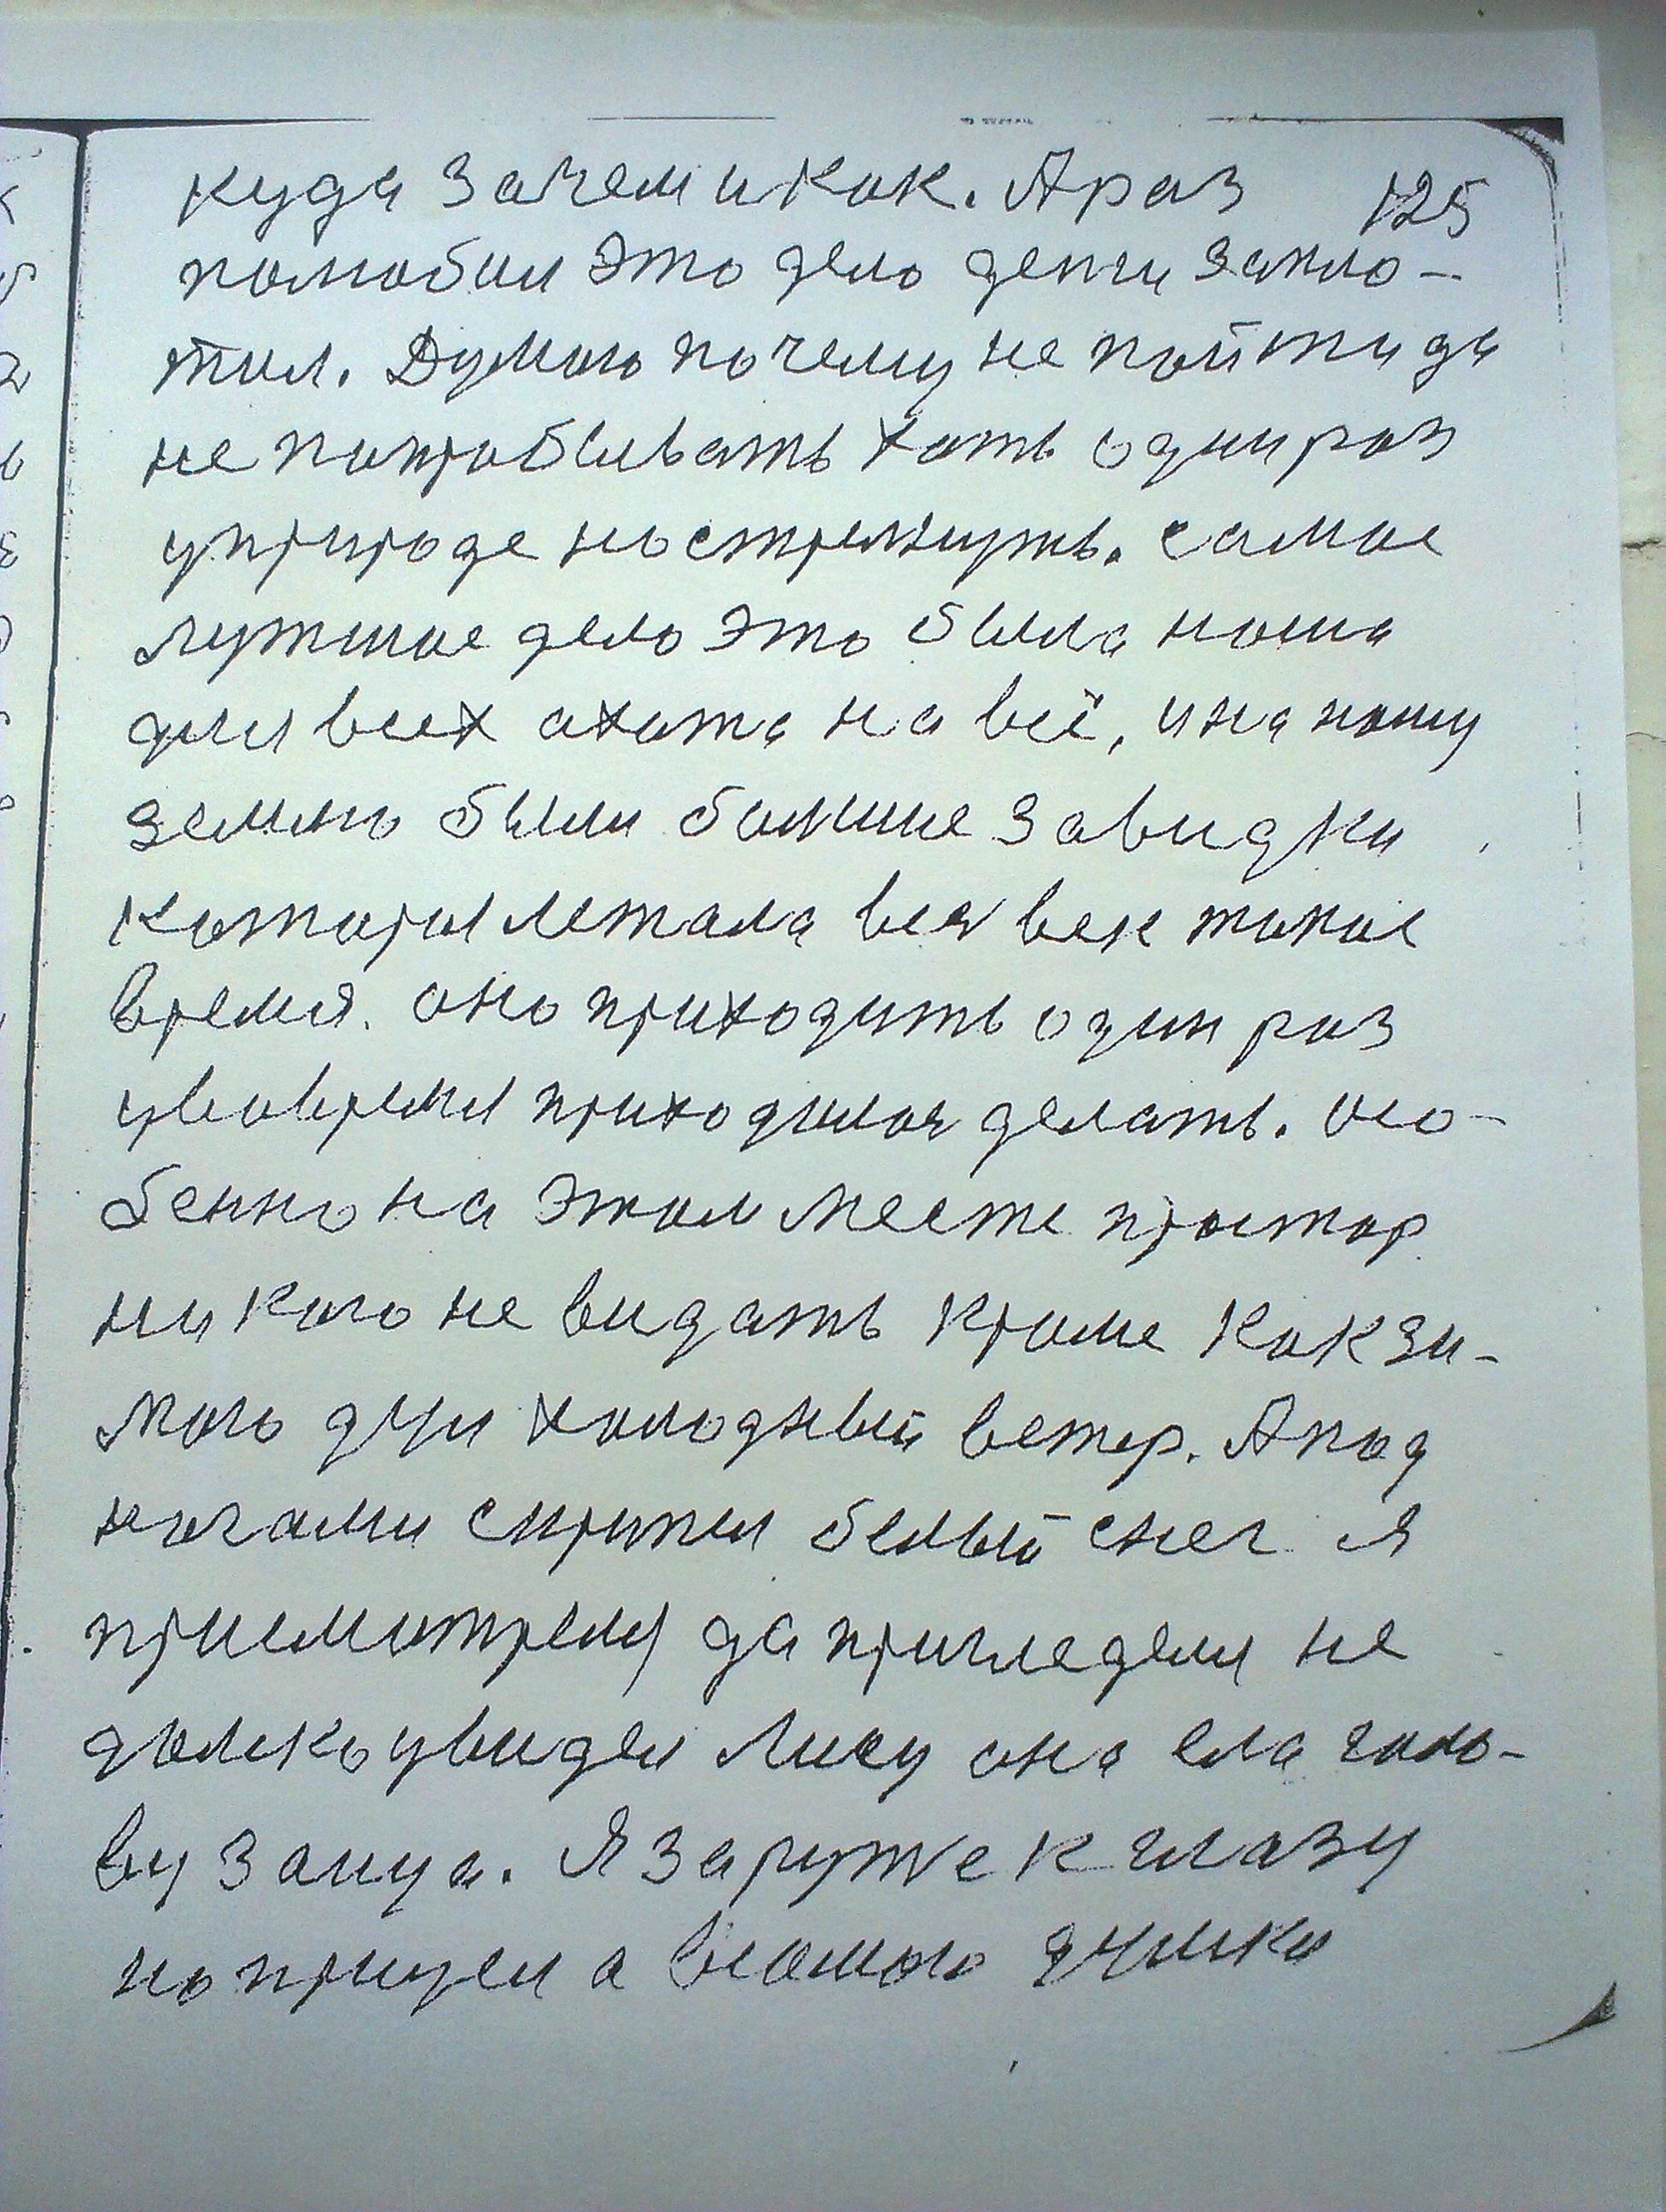 куда зачем и как. А раз 125
полюбил это дело денги запло-
тил. Думаю почему не пойти да
не попробывать хоть один раз
у природе не стрельнуть. самое
лутшое дело это была наша
для всех ахота на всё, и на нашу
землю были большие завидки
которы летала вся век такое
время. оно приходить один раз
у своё время приходилося делать. осо-
бенно на этом месте простор
никого не видать кроме как зи-
мою дул холодный ветер. А под
ногами скрипел белый снег я
присмотрел да пригледел не
далеко увидел лису она ела голо-
ву зайца. Я за ружье к глазу
на прицел а в самого думка